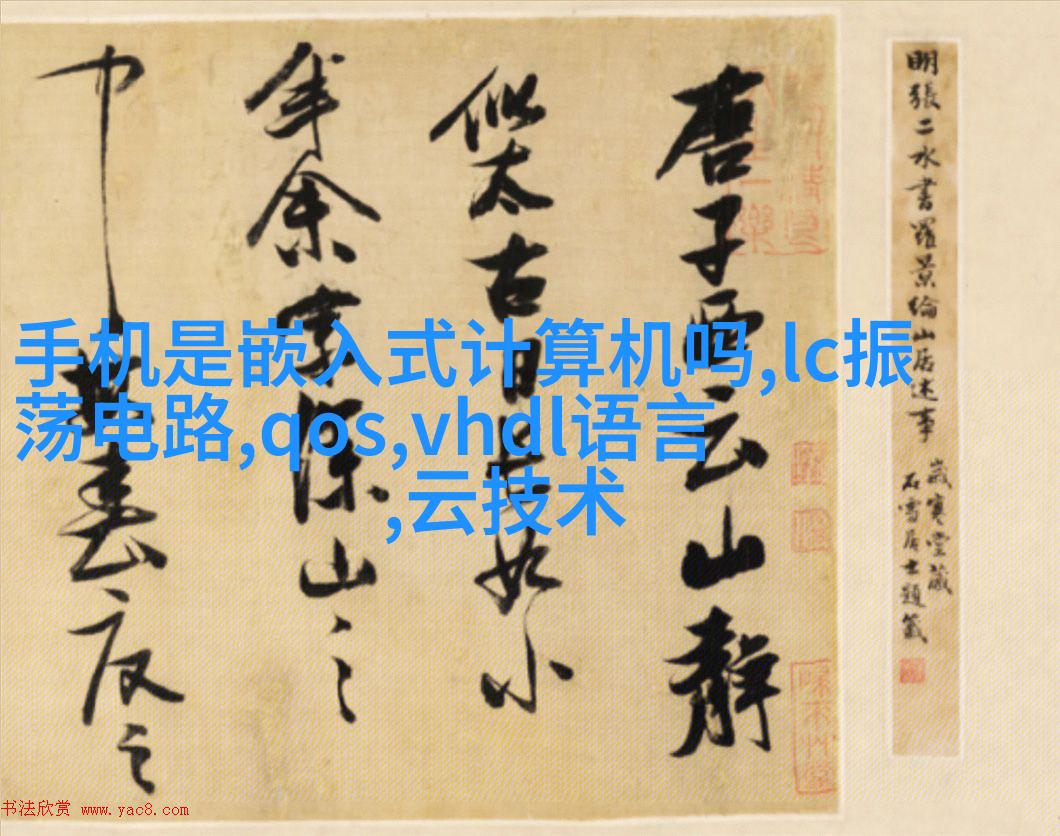 明張二水書羅景綸山居述事
歲寒堂藏
石雪居士題籤
唐子西云山靜
似太古日長如小
年余家深山之
中每春夏之
手机是嵌入式计算机吗,lc振
荡电路,qos,vhdl语言
,云技术
书法欣赏 www.yac8.com